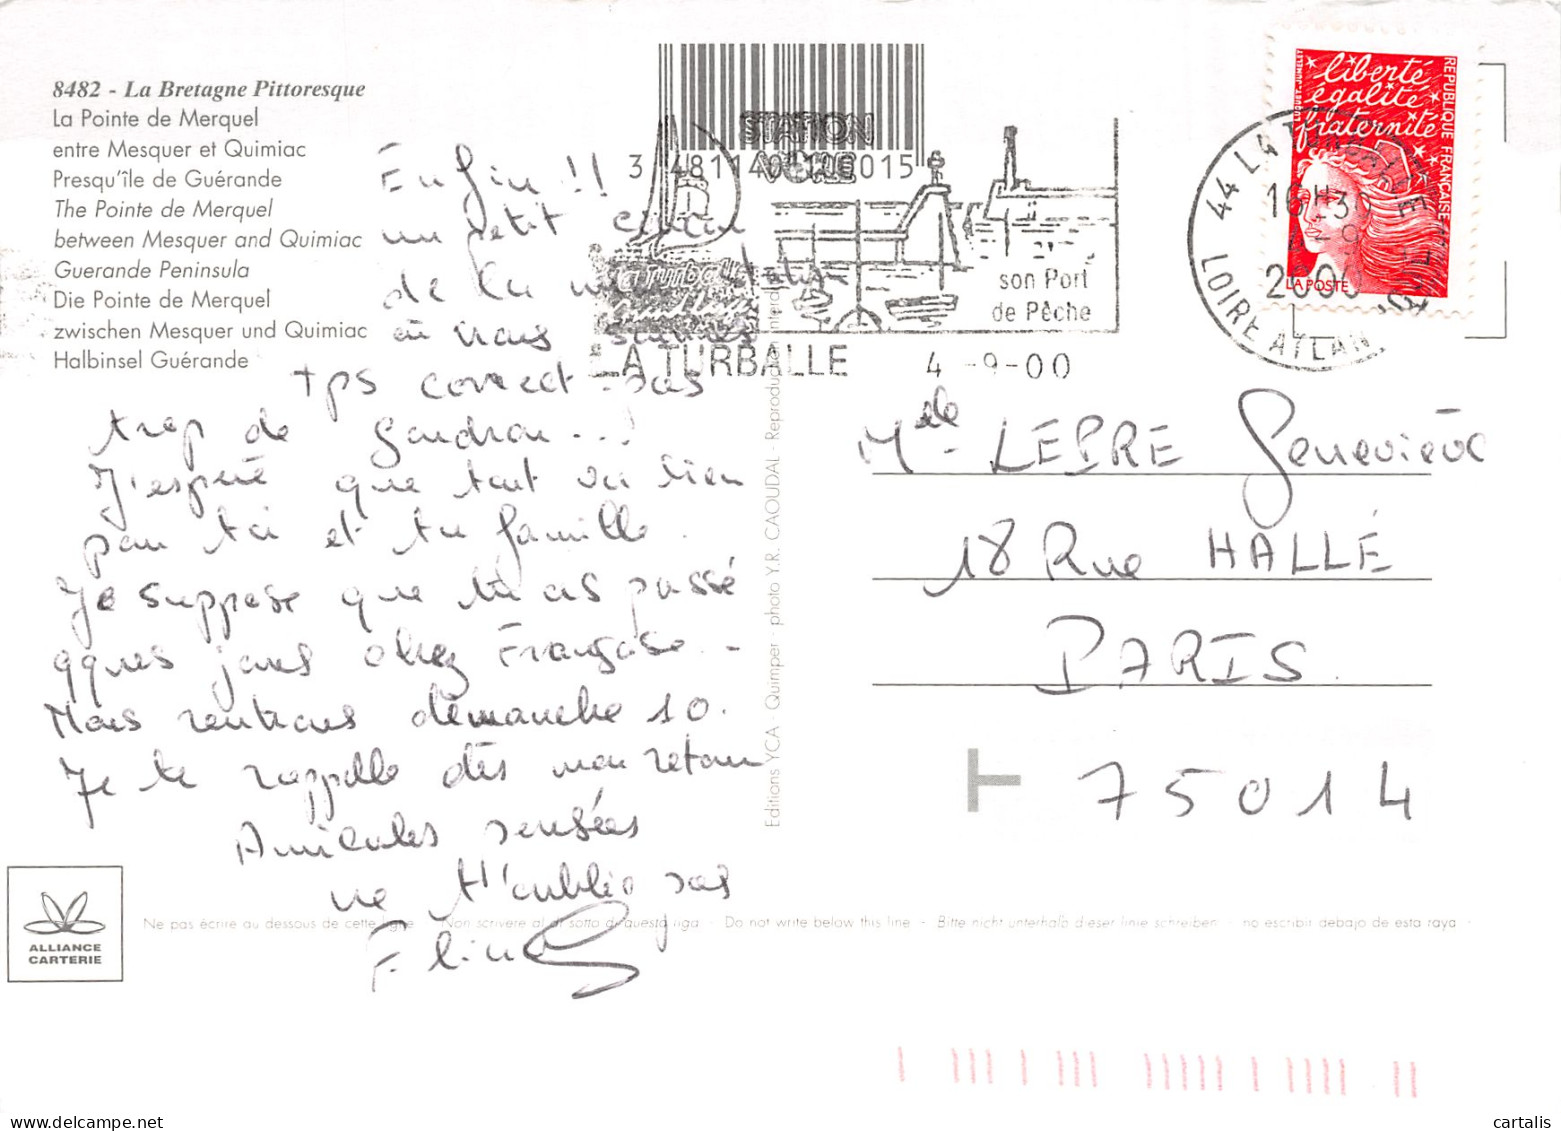 8482 - La Bretagne Pittoresque
La Pointe de Merquel
entre Mesquer et Quimiac
Presqu'île de Guérande
The Pointe de Merquel
between Mesquer and Quimiac
Guerande Peninsula
Die Pointe de Merquel
zwischen Mesquer und Quimiac
Halbinsel Guérande
Enfin !!
un petit coucou
de la
où nous sommes
tps correct pas
trop de goudron...!
J'espère que tout va bien
pour toi et ta famille.
Je suppose que tu as passé
qques jours chez Françoise.-
Nous rentrons dimanche 10.
Je te rappelle dès mon retour
Amicales pensées
ne t'oublie pas
STATION
VOILE
la Turballe
son Port
de Pêche
LA TURBALLE 4 -9-00
liberté
égalité
fraternité
REPUBLIQUE FRANÇAISE
LA POSTE
44 LA TURBALLE
16H30
4-9
2000
LOIRE ATLANTIQUE
Melle LEPRE Geneviève
18 Rue HALLÉ
PARIS
75014
T
Editions YCA - Quimper - photo Y.R. CAOUDAL - Reproduction interdite
ALLIANCE
CARTERIE
Ne pas écrire au dessous de cette ligne - Non scrivere al di sotto di questa riga - Do not write below this line - Bitte nicht unterhalb dieser linie schreiben - no escribir debajo de esta raya -
cartalis